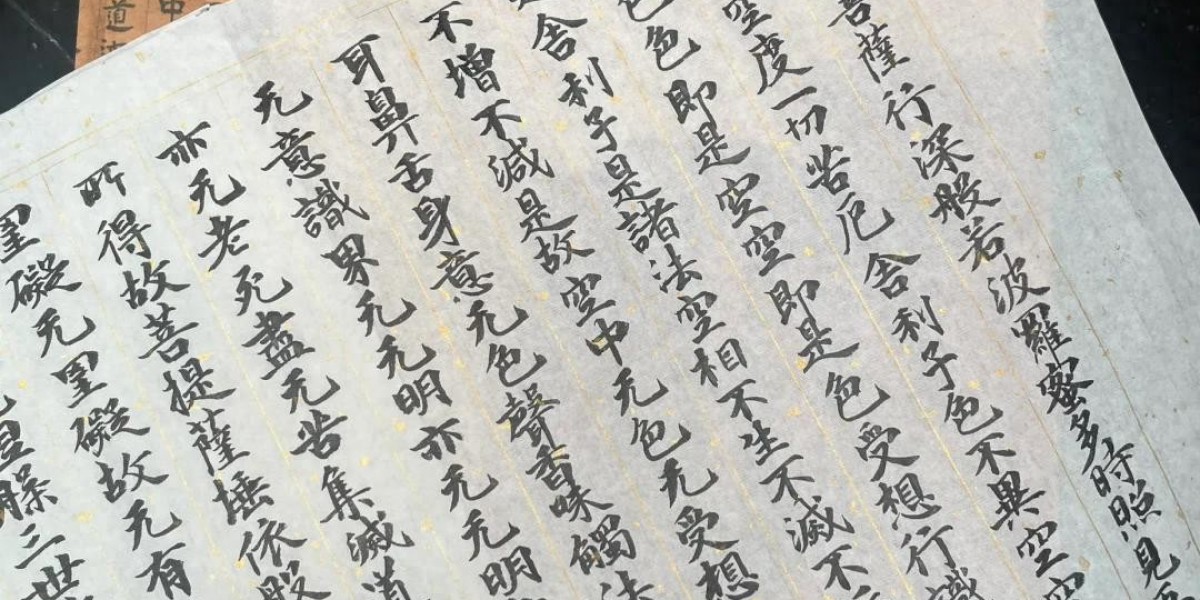 菩薩行深般若波羅蜜多時照見五
空度一切苦厄舍利子色不異空空
色色即是空空即是色受想行識
舍利子是諸法空相不生不滅不
不增不減是故空中无色无受想
耳鼻舌身意无色聲香味觸法
无意識界无无明亦无无明
亦无老死盡无苦集滅道
所得故菩提薩埵依般
罣礙无罣礙故无有
三世
中
道